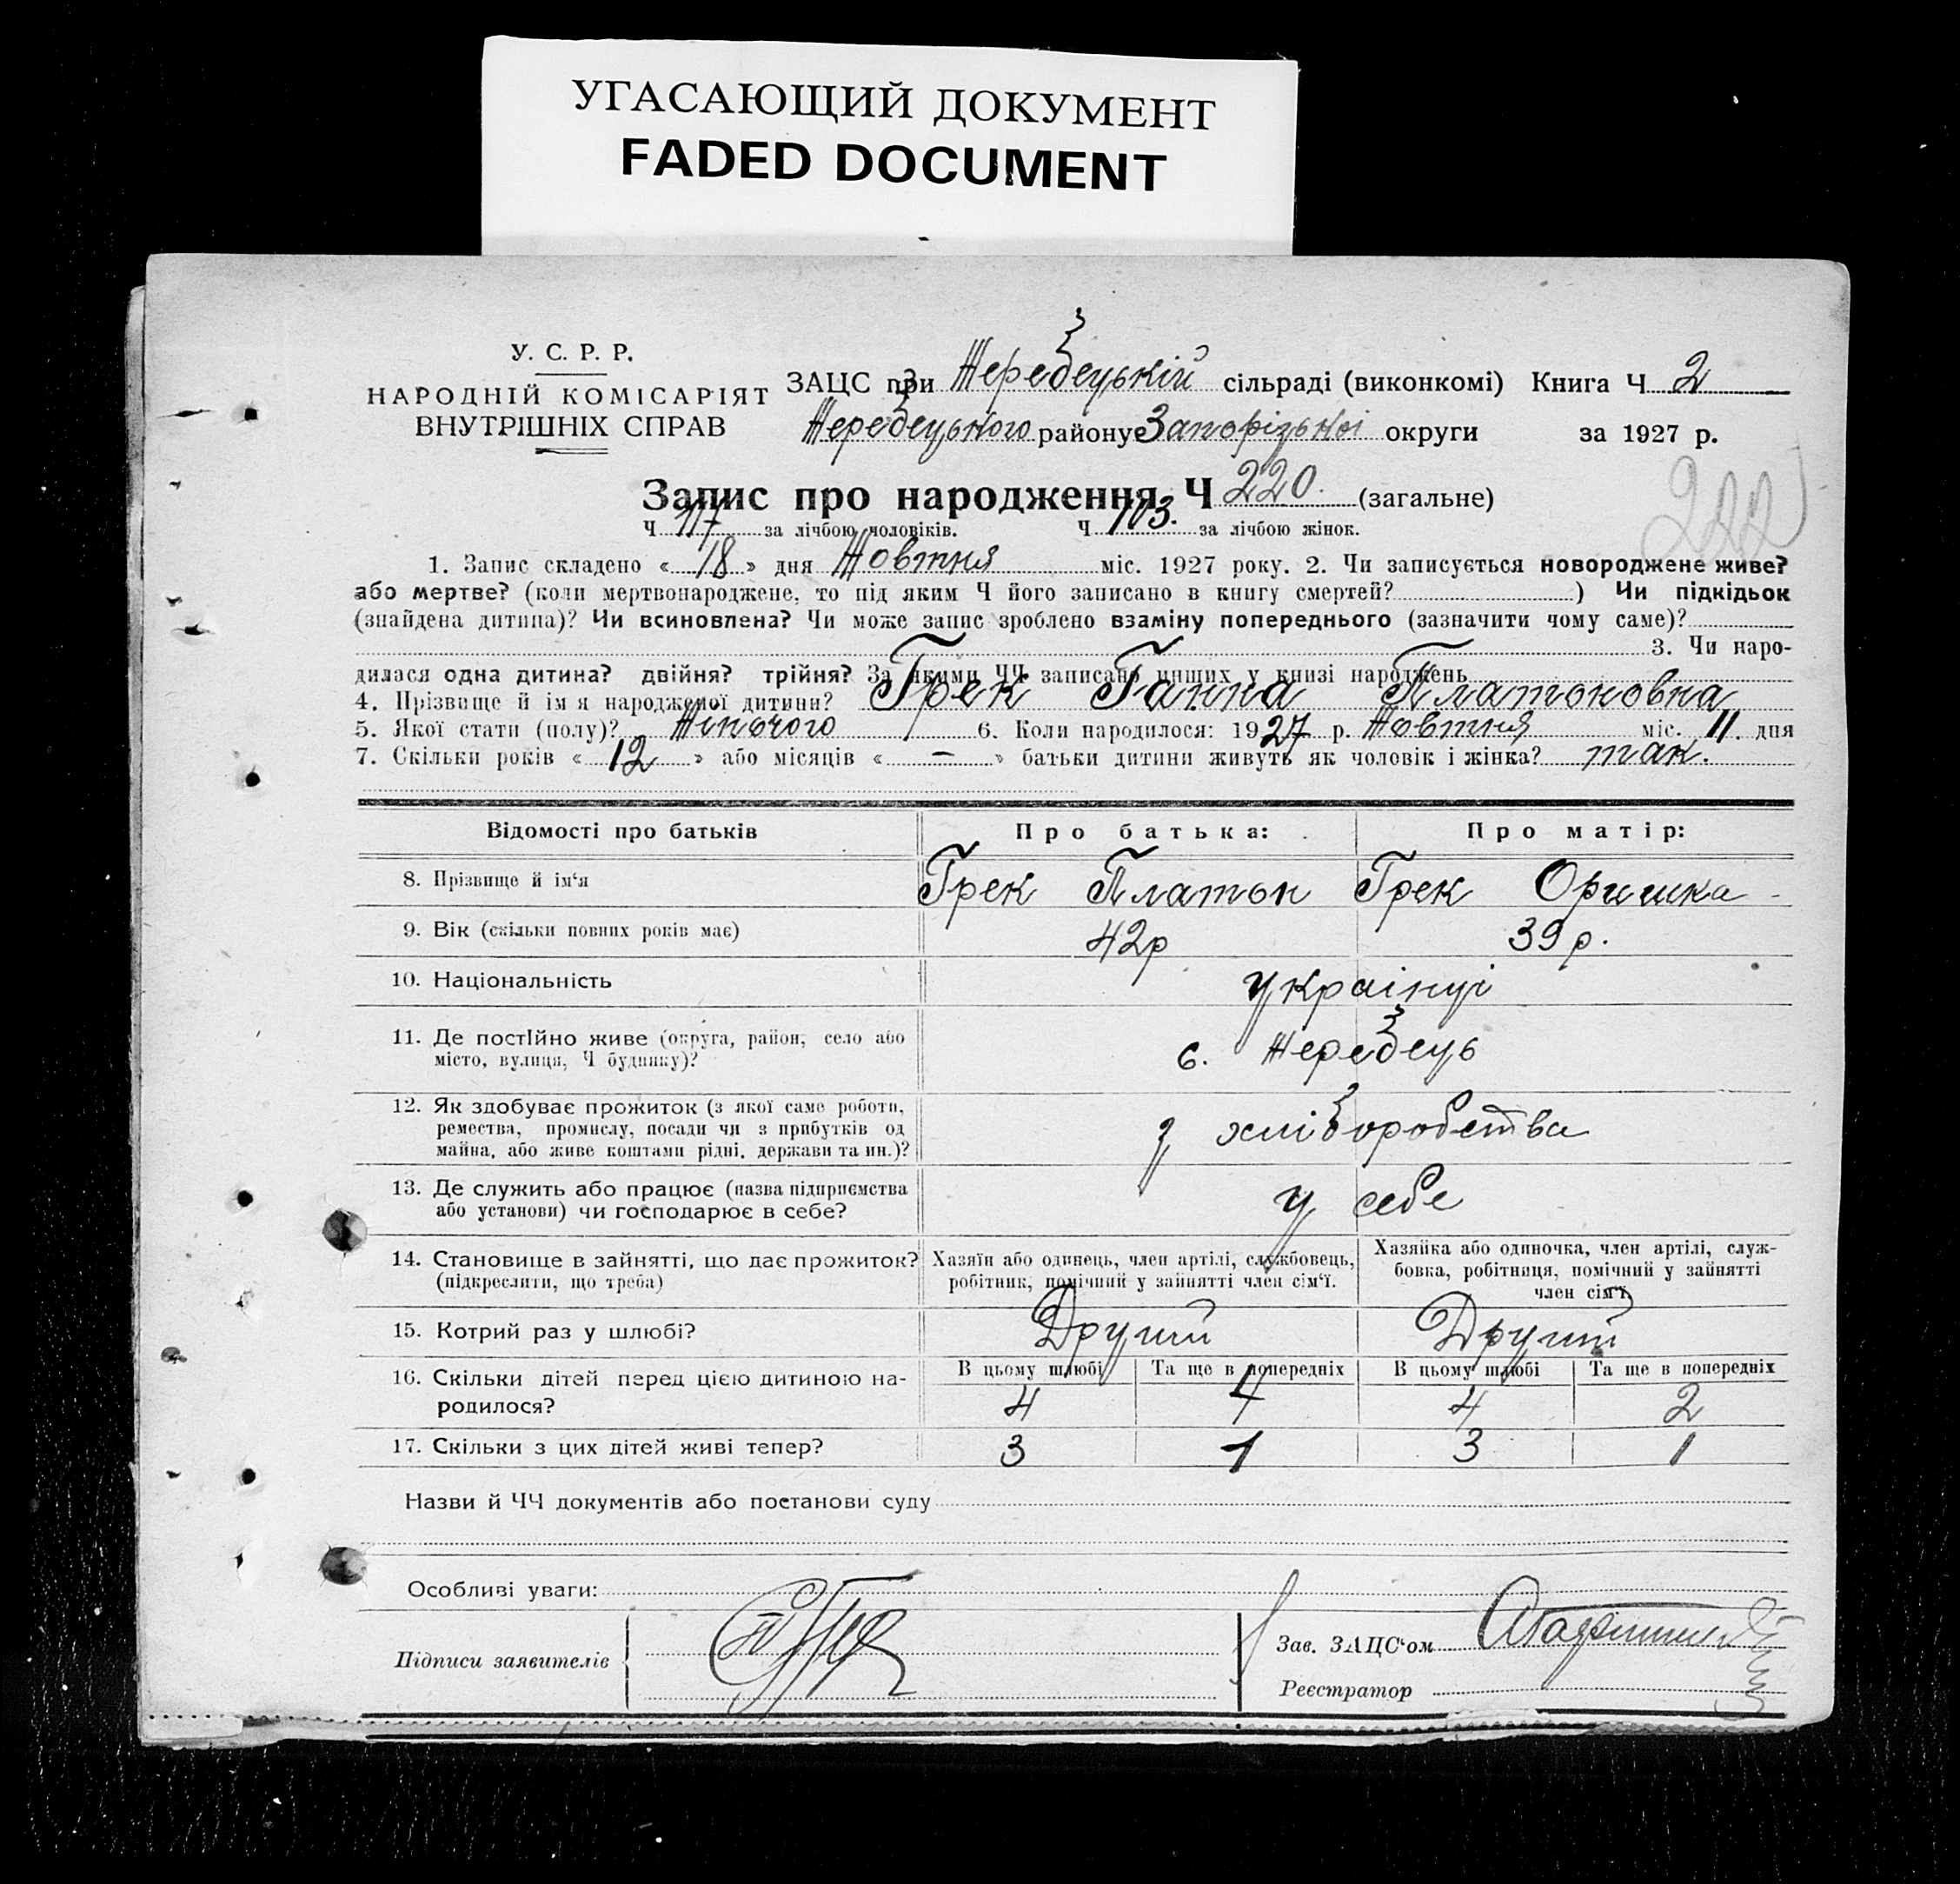 УГАСАЮЩИЙ ДОКУМЕНТ
FADED DOCUMENT
У. С. Р. Р.
НАРОДНІЙ КОМІСАРІЯТ
ВНУТРІШНІХ СПРАВ
ЗАЦС при Жеребецькій сільраді (виконкомі) Книга Ч 2
Жеребецького району Запорізької округи за 1927 р.
Запис про народження Ч 220. (загальне)
222
Ч 117 за лічбою чоловіків. Ч 103. за лічбою жінок.
1. Запис складено « 18 » дня Жовтня міс. 1927 року. 2. Чи записується новороджене живе?
або мертве? (коли мертвонароджене, то під яким Ч його записано в книгу смертей? ) Чи підкідьок
(знайдена дитина)? Чи всиновлена? Чи може запис зроблено взаміну попереднього (зазначити чому саме)?
3. Чи наро-
дилася одна дитина? двійня? трійня? За якими ЧЧ записано инших у книзі народжень
4. Прізвище й ім я народженої дитини? Грек Ганна Платоновна
5. Якої стати (полу)? Жіночого 6. Коли народилося: 1927 р. Жовтня міс. 11. дня
7. Скільки років « 12 » або місяців « — » батьки дитини живуть як чоловік і жінка? так.
Відомості про батьків Про батька: Про матір:
8. Прізвище й ім'я Грек Платон Грек Оришка
9. Вік (скільки повних років має) 42р 39р.
10. Національність українці
11. Де постійно живе (округа, район, село або
місто, вулиця, Ч будинку)? с. Жеребець
12. Як здобуває прожиток (з якої саме роботи,
ремества, промислу, посади чи з прибутків од
майна, або живе коштами рідні, держави та ин.)? з хліборобства
13. Де служить або працює (назва підприємства
або установи) чи господарює в себе? у себе
14. Становище в зайнятті, що дає прожиток?
(підкреслити, що треба)
Хазяїн або одинець, член артілі, службовець,
робітник, помічний у зайнятті член сім'ї.
Хазяйка або одиночка, член артілі, служ-
бовка, робітниця, помічний у зайнятті
член сім'ї.
15. Котрий раз у шлюбі? Другий Другий
В цьому шлюбі Та ще в попередніх В цьому шлюбі Та ще в попередніх
16. Скільки дітей перед цією дитиною на-
родилося? 4 1 4 2
17. Скільки з цих дітей живі тепер? 3 1 3 1
Назви й ЧЧ документів або постанови суду
Особливі уваги:
Підписи заявителів
Зав. ЗАЦС'ом
Реєстратор